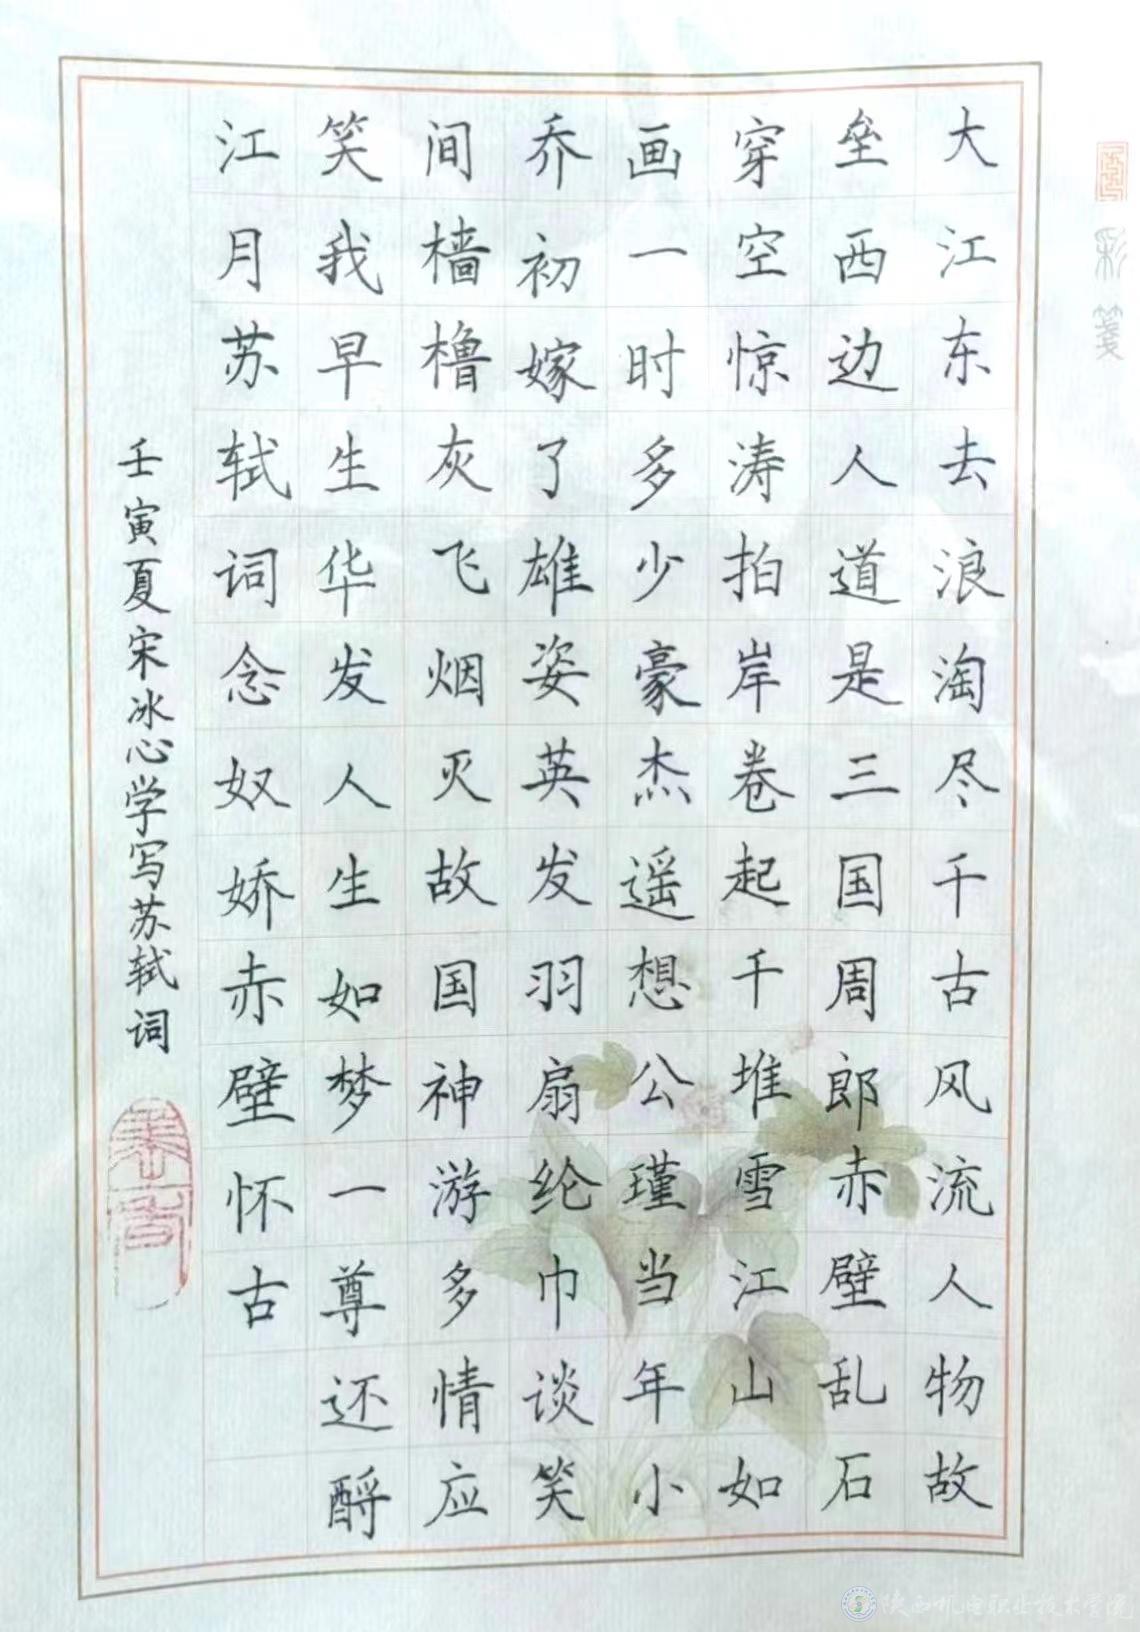 大江东去浪淘尽千古风流人物故
垒西边人道是三国周郎赤壁乱石
穿空惊涛拍岸卷起千堆雪江山如
画一时多少豪杰遥想公瑾当年小
乔初嫁了雄姿英发羽扇纶巾谈笑
间樯橹灰飞烟灭故国神游多情应
笑我早生华发人生如梦一尊还酹
江月苏轼词念奴娇赤壁怀古
壬寅夏宋冰心学写苏轼词
彩笺
陕西机电职业技术学院